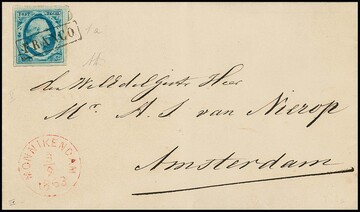 POST ZEGEL
FRANCO
1a
den WelEdelGestr Heer
Mr. A. S. van Nierop
Amsterdam
MONNIKENDAM
8
9
1853